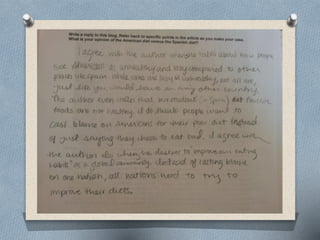 Write a reply to this blog. Refer back to specific points in the article as you make your case.
What is your opinion of the American diet versus the Spanish diet?
I agree with the author when she talks about how people
see as unhealthy and lazy compared to other
places like Spain. While some are lazy & unhealthy, not all are,
just like you would have in any other country.
The author even notes that in eat native
foods are not healthy. I do think people want to
cast blame on Americans for their poor diet instead
of just saying they chose to eat bad. I agree with
the author also when he desires to improve our eating
habits as a global community. Instead of casting blame
on one nation, all nations need to try to
improve their diets.